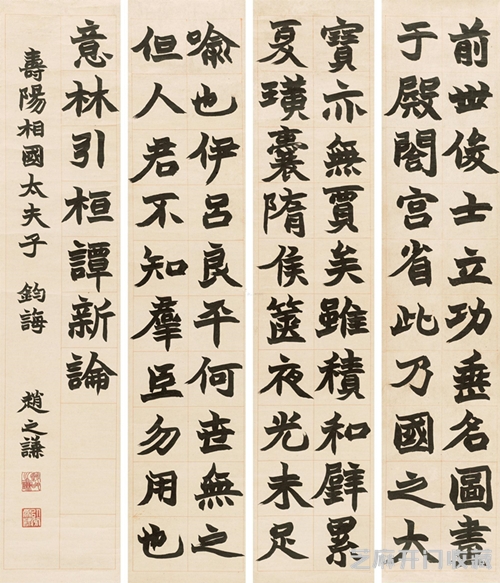 前世俊士立功垂名圖畫
于殿閣宮省此乃國之大
寶亦無賈矣雖積和璧累
夏璜囊隋侯篋夜光未足
喻也伊呂良平何世無之
但人君不知羣臣勿用也
意林引桓譚新論
壽陽相國太夫子 鈞誨 趙之謙
芝麻开门收藏